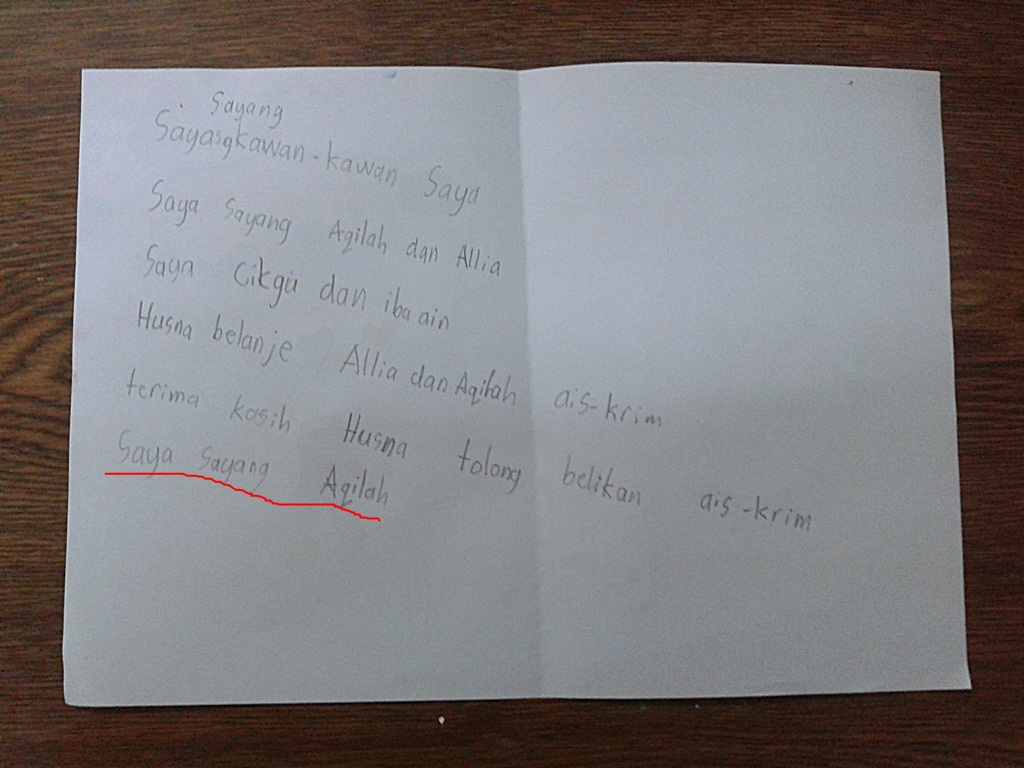 Sayang
Sayasgkawan-kawan Saya
Saya Sayang Aqilah dan Allia
Saya Cikgu dan ibu ain
Husna belanje Allia dan Aqilah ais-krim
terima kasih Husna tolong belikan ais-krim
Saya Sayang Aqilah